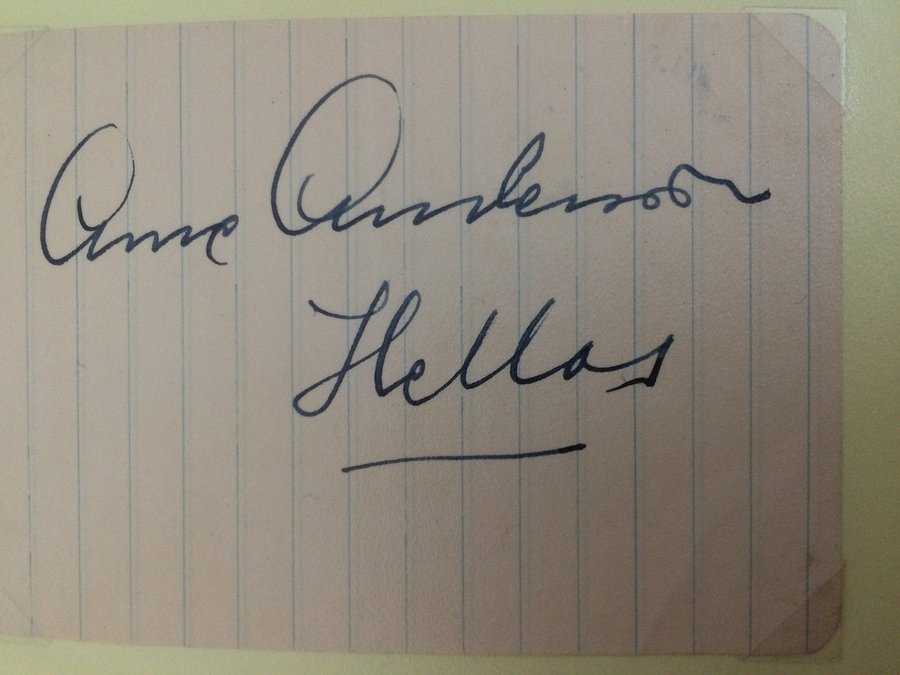 Arne Anderson
Hellas